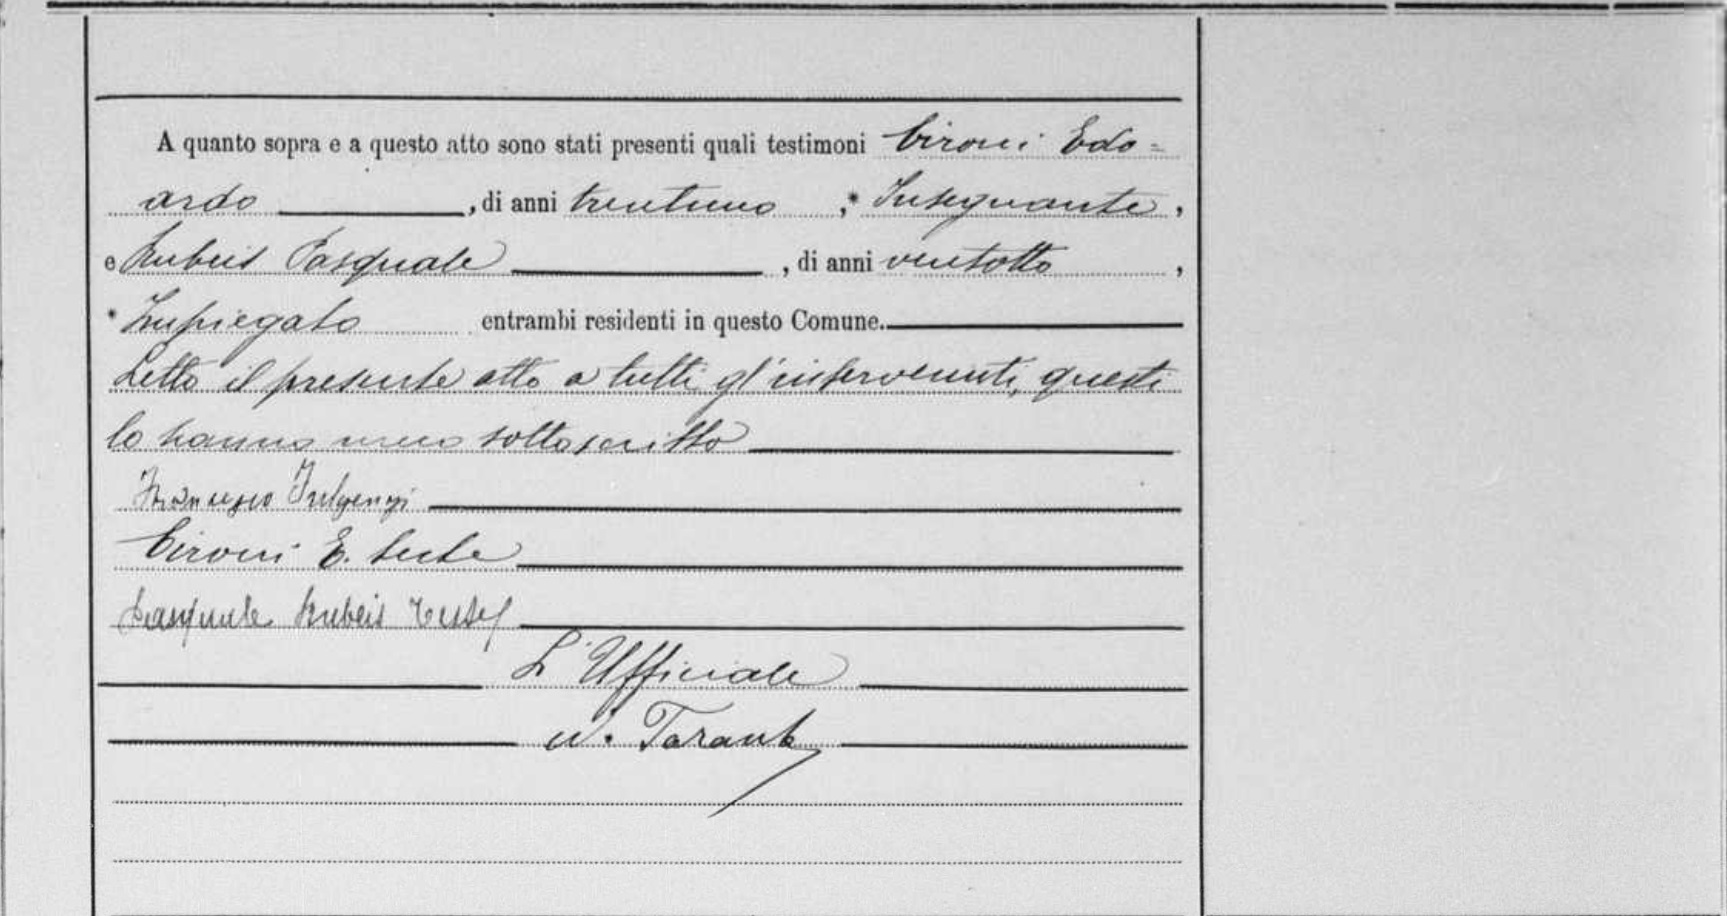 A quanto sopra e a questo atto sono stati presenti quali testimoni Cironi Edo=
ardo, di anni trentuno, * Insegnante,
e Rubeis Pasquale, di anni ventotto,
* Impiegato entrambi residenti in questo Comune.
Letto il presente atto a tutti gl'intervenuti, questi
lo hanno meco sottoscritto
Francesco
Cironi E. teste
Pasquale Rubeis
L'Ufficiale